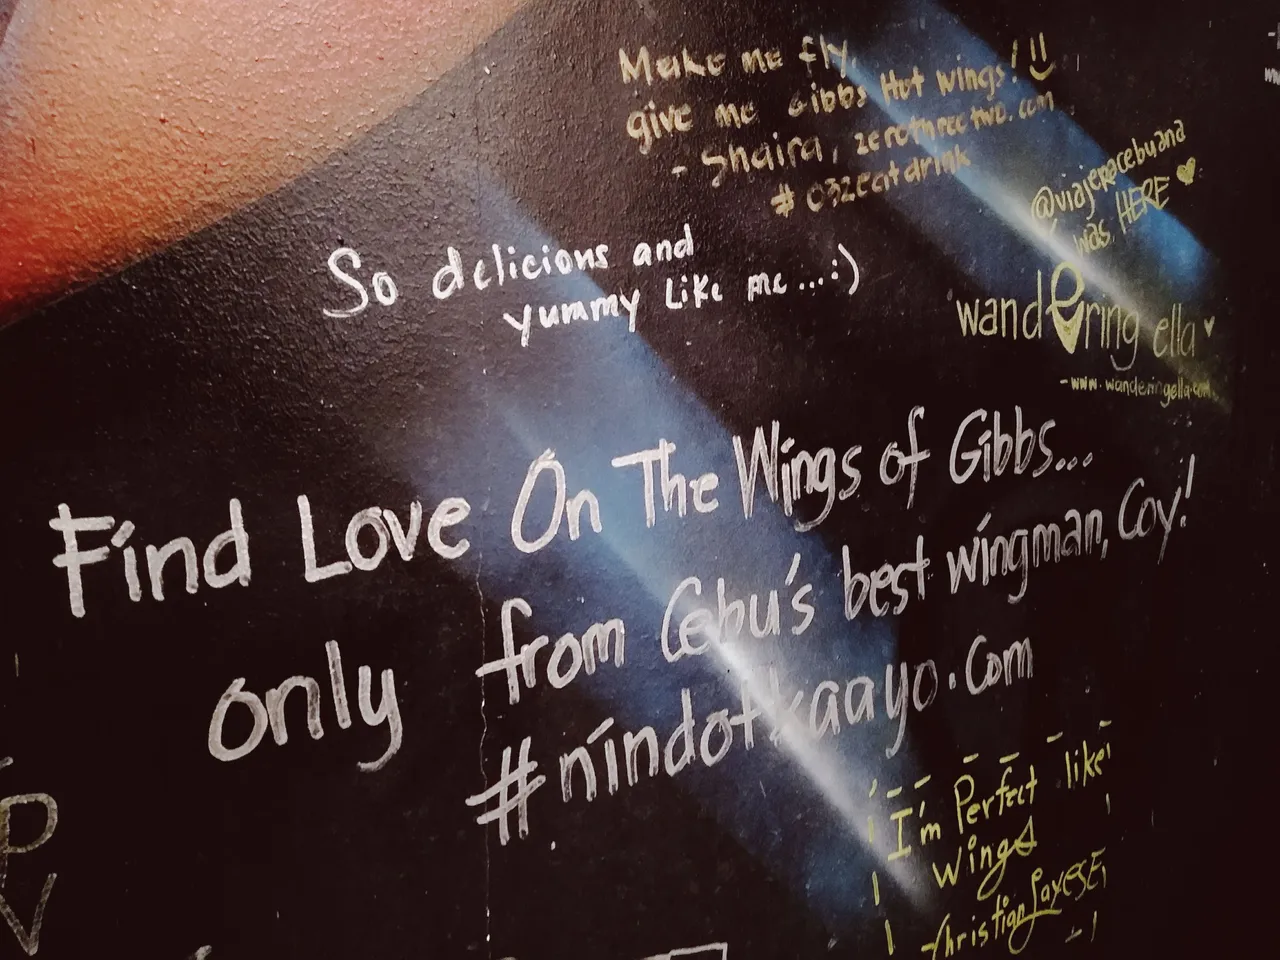 Make me fly,
give me Gibbs Hot wings! !! :)
- Shaira, zerothreetwo.com
# 032eatdrink
@viajeracebuana
was HERE ♥
So delicious and
yummy like me...:)
wandering ella ♥
- www.wanderingella.com
Find Love On The Wings of Gibbs...
only from Cebu's best wingman, Coy!
#nindotkaayo.com
I'm Perfect like
Wings